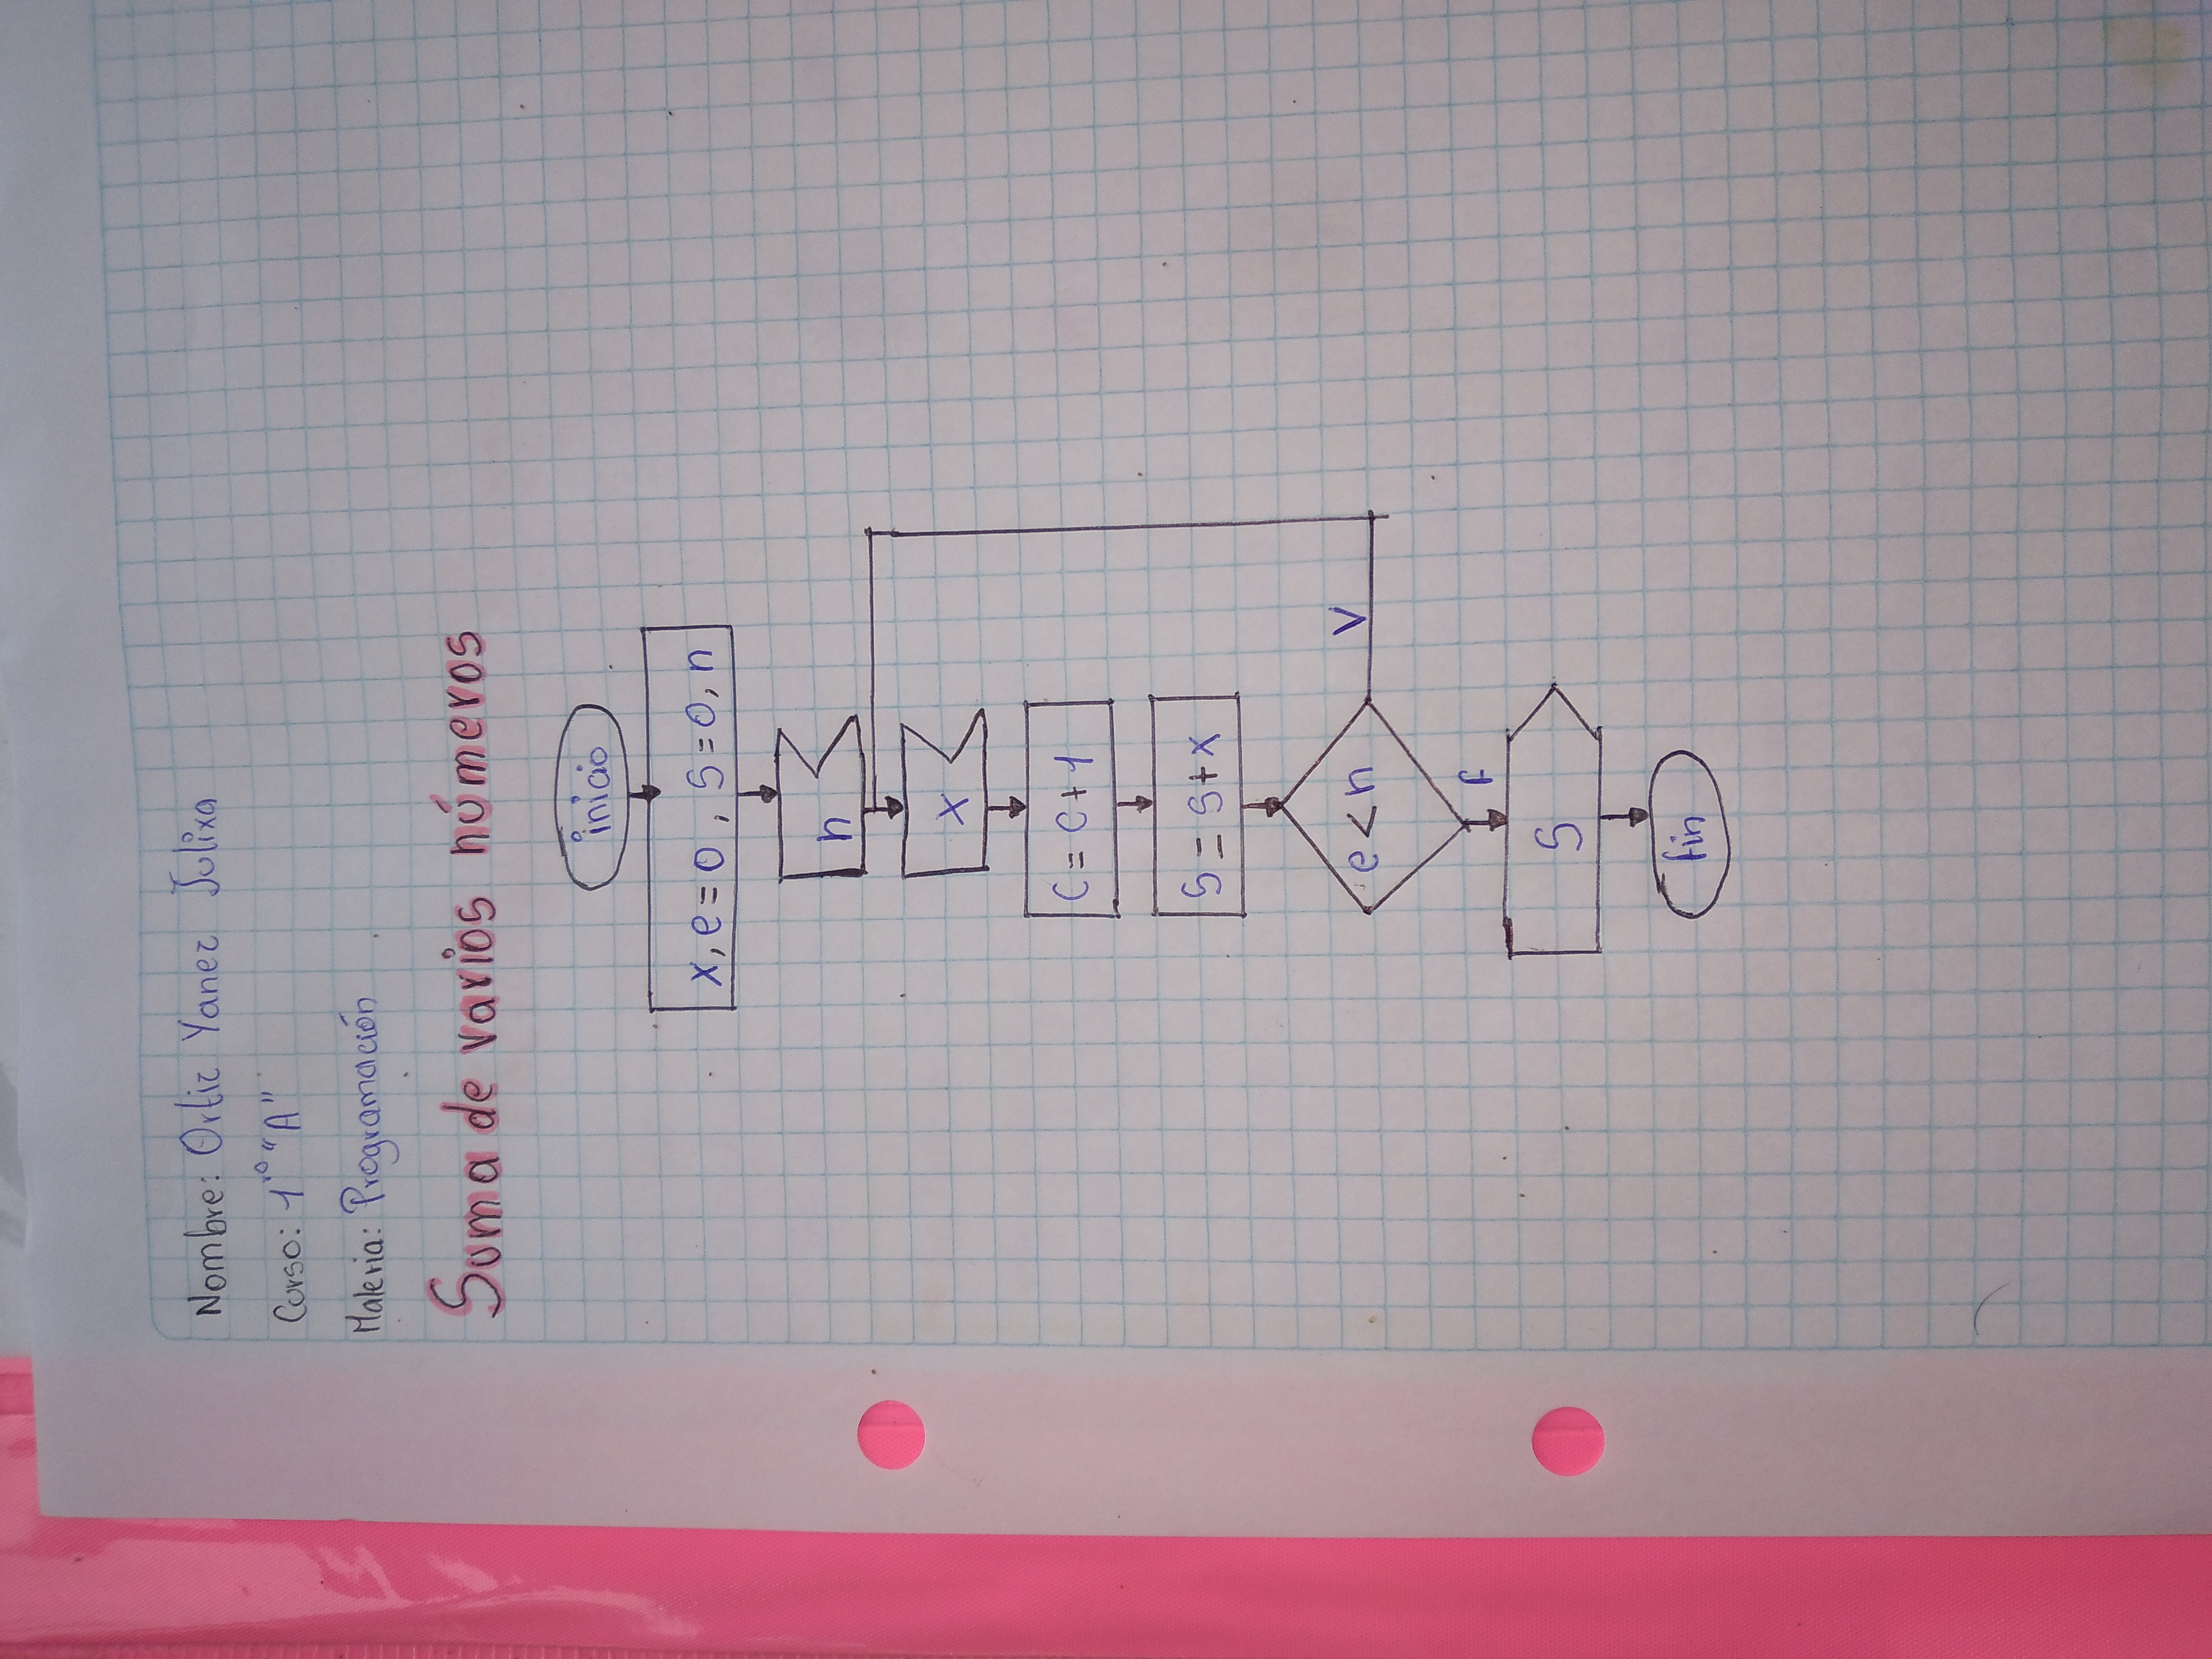 Nombre: Ortiz Yanez Julixa
Curso: 1ro "A"
Materia: Programación
Suma de varios números
inicio
x, e=0, S=0, n
n
x
C= C+1
S = S+x
e < n
V
F
S
fin